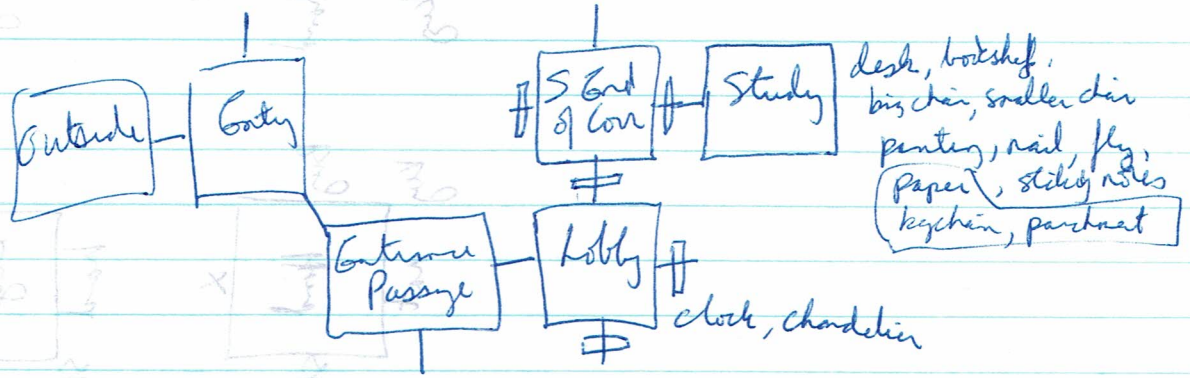 Outside
Entry
S End
of Corr
Study
desk, bookshelf,
big chair, smaller chair
painting, nail, fly,
paper, sticky notes
keychain, parchment
Entrance
Passage
Lobby
clock, chandelier